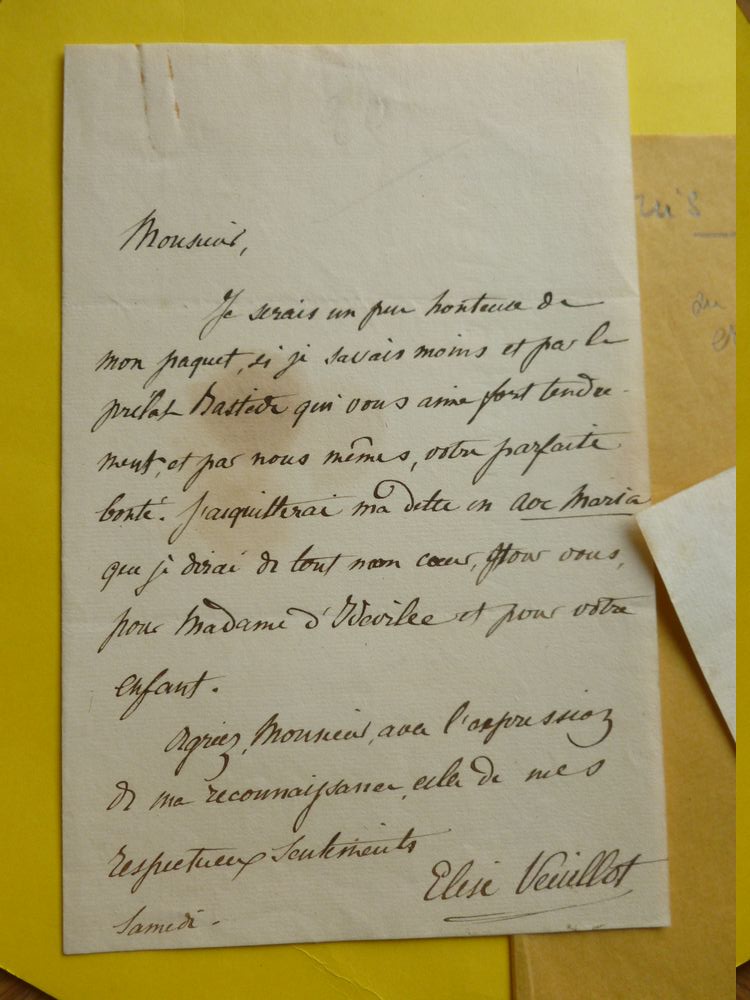 Monsieur,
Je serais un peu honteuse de
mon paquet, si je savais moins et par le
prélat Bastide qui vous aime fort tendre-
ment, et par nous mêmes, votre parfaite
bonté. J'acquitterai ma dette en ave Maria
que je dirai de tout mon cœur, pour vous,
pour Madame d'Ideville et pour votre
enfant.
Agréez, Monsieur, avec l'expression
de ma reconnaissance, celle de mes
respectueux sentiments
Elise Veuillot
Samedi.